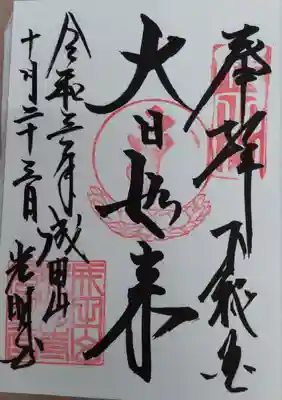 奉拝 下総国
大日如来
令和三年 成田山
十月二十三日 光明堂